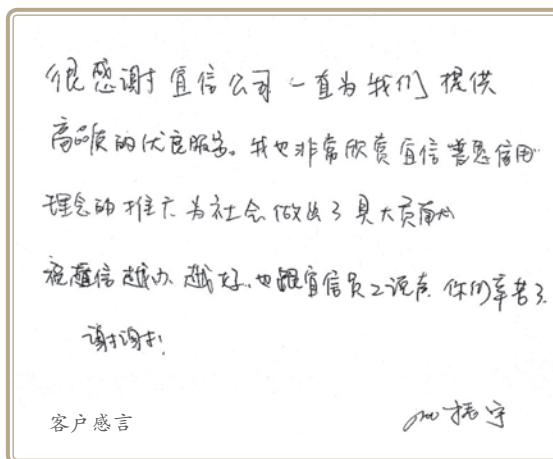 很感谢宜信公司一直为我们提供
高品质的优良服务。我也非常欣赏宜信普惠信用
理念的推广为社会做出了具大贡献
祝宜信越办越好.也跟宜信员工说声 你们辛苦了.
谢谢!
振宇
客户感言